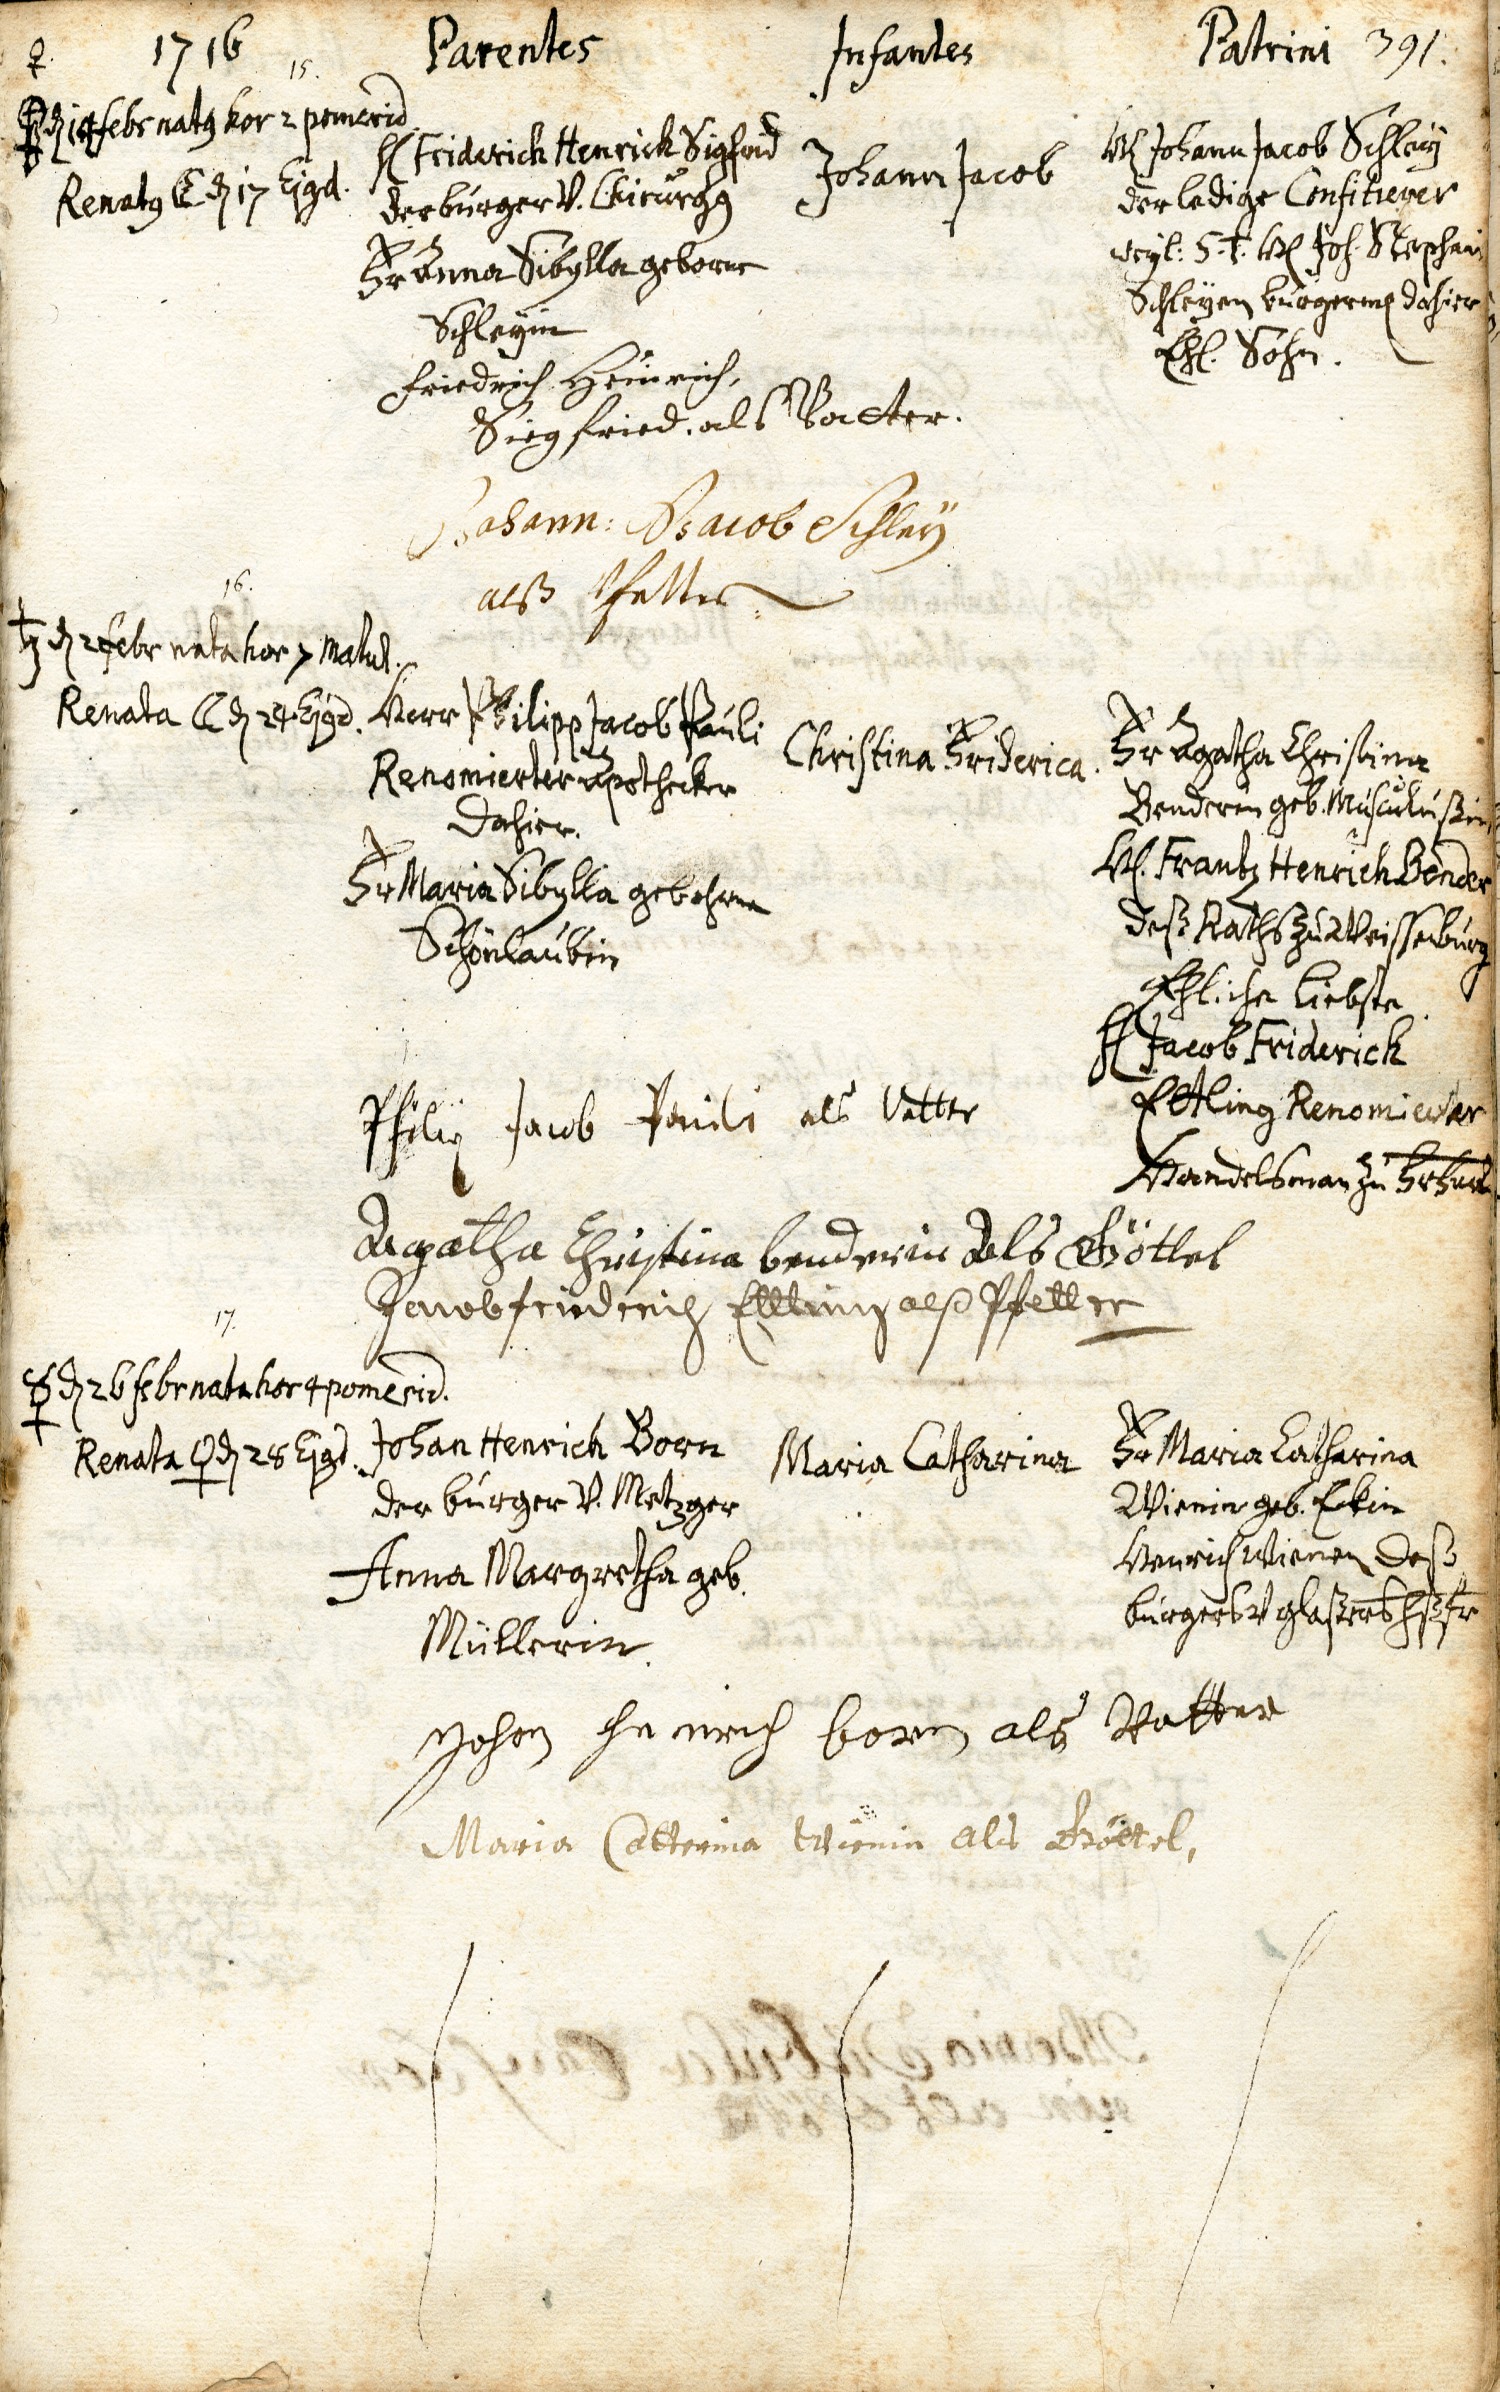 ♀. 1716 Parentes Infantes Patrini 391.
15.
d 14 febr natq hor 2 pomerid
Renatq ☾ d 17 Ejqd.
H Friderich Henrich Sigfrid
der burger V. Chirurgq
Fr Anna Sibylla geborne
Schleyin
Johann Jacob
H Johann Jacob Schley
der ledige Confitirer
weyl: S. T. H Joh. Stephan
Schleyen burgerm dahier
Ehl. Sohn.
Friedrich Heinrich,
Siegfried. als Vatter.
Johann: Jacob Schley
alß Pfetter
16.
♄ d febr nata hor 7 matut.
Renata ☾ d 24 Ejqd.
Herr Philipp Jacob Pauli
Renomierter Apothecker
Dahier.
Fr Maria Sibylla gebohrne
Schönlaubin
Christina Friderica.
Fr Agatha Christina
Benderin geb. Musculußin
H. Frantz Henrich Bender
deß Raths zu Weissenburg
Ehliche Liebste
H Jacob Friderich
Ettling Renomierter
Handelsman zu
Philip Jacob Pauli als Vatter
Agatha Christina benderin Als Göttel
Jacob friederich Ettling alß Pfetter
17.
☿ d 26 febr nata hor 4 pomerid.
Renata ♀ d 28 Ejqd.
Johan Henrich Born
der burger V. Metzger
Anna Margretha geb.
Müllerin.
Maria Catharina
Fr Maria Catharina
Wienin geb. Eckin
Henrich Wienen deß
burgers V glaßers Hßfr
Johan henrich born als Vatter
Maria Catterina Wienin als Göttel,